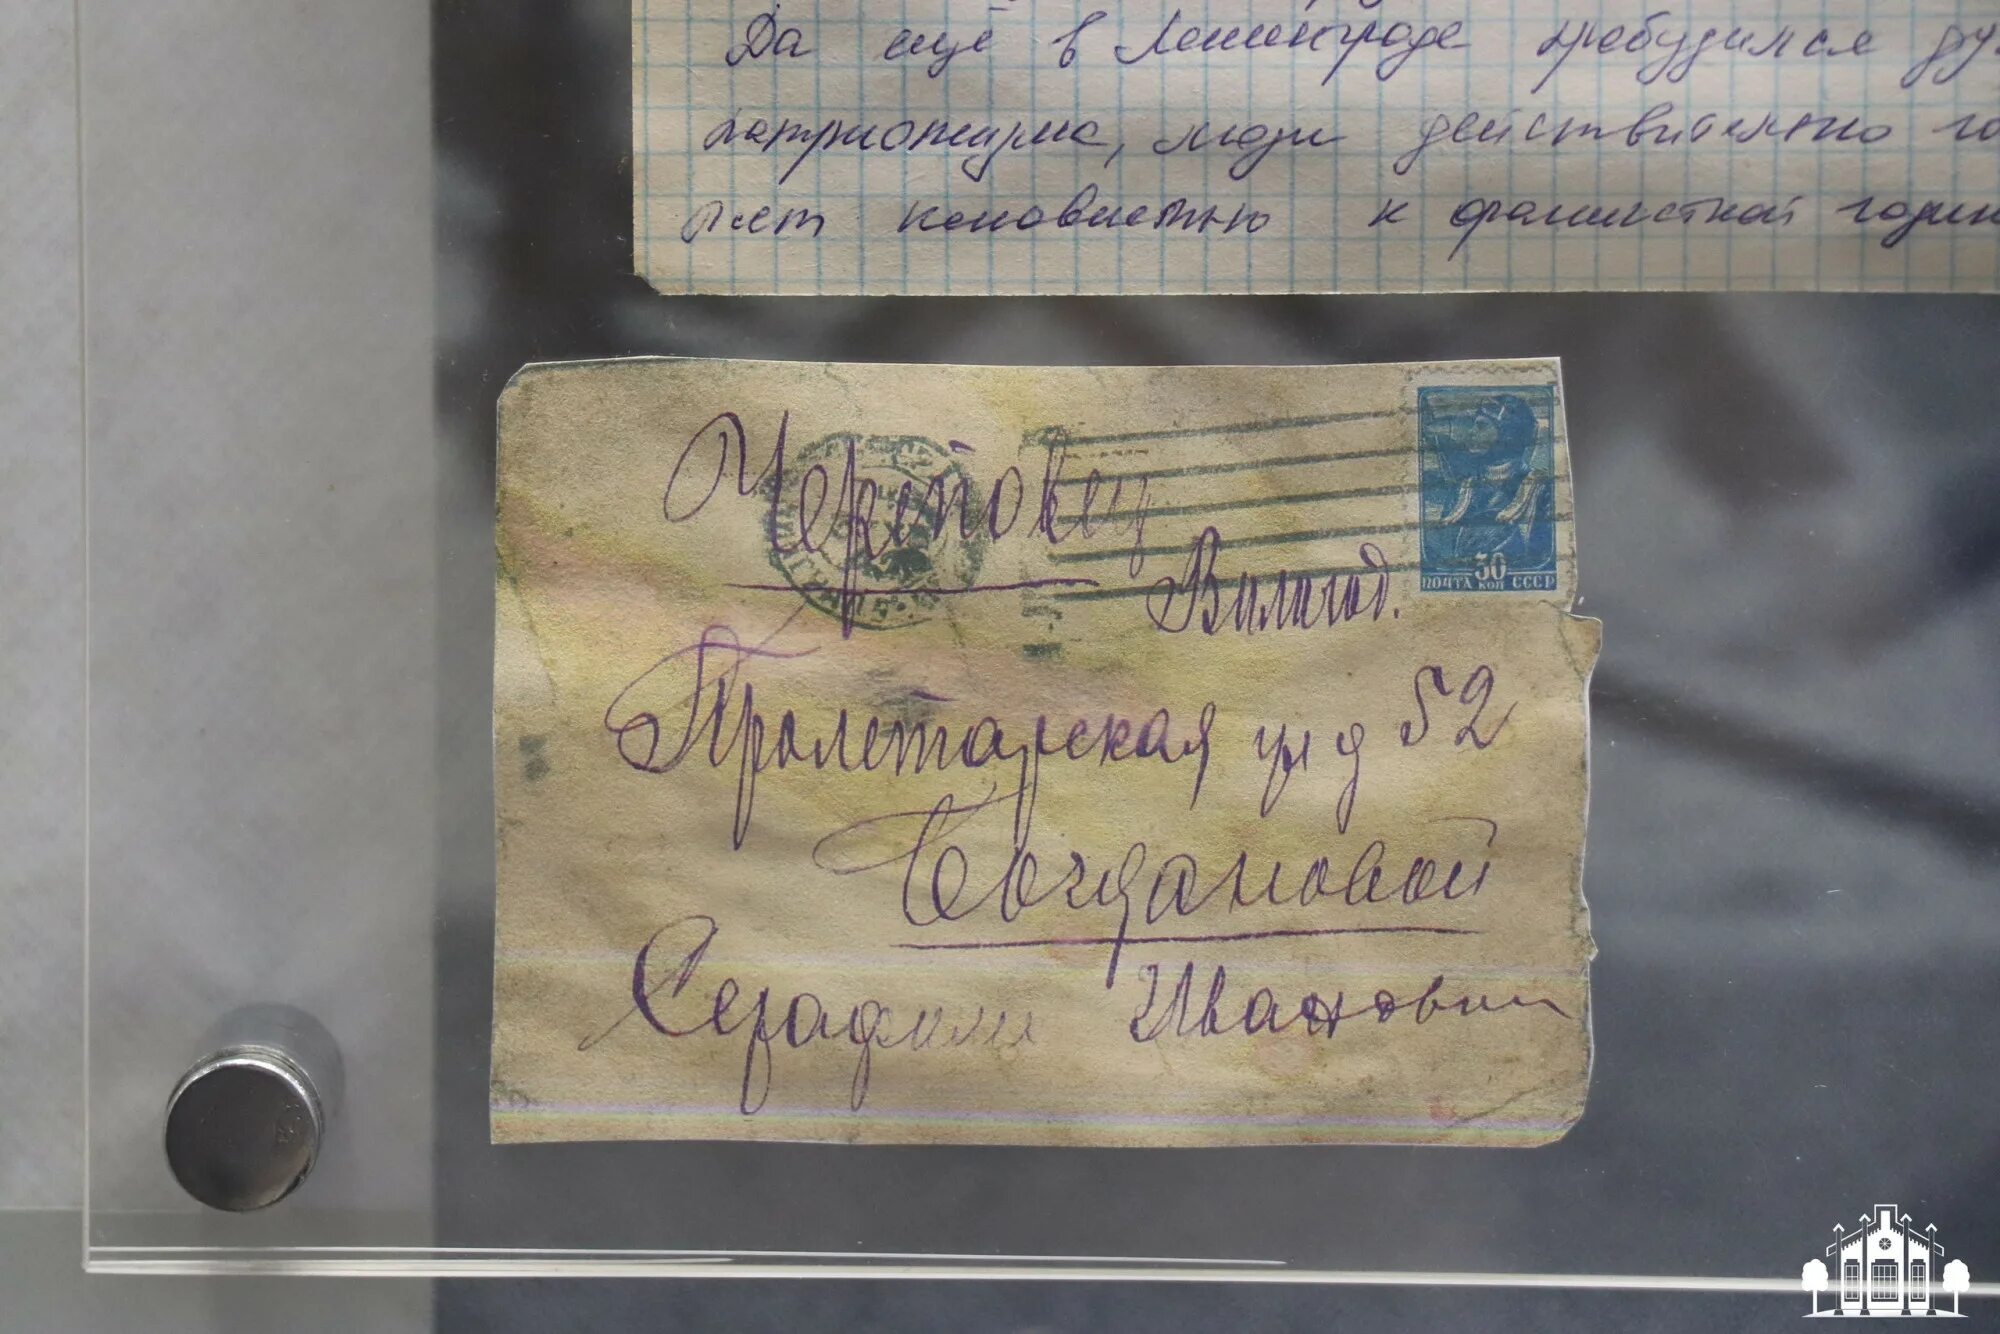 Да ещё в Ленинграде пробудился ду
патриотизма, люди действительно го
рят ненавистью к фашистской
Череповец
Вологод.
Пролетарская ул д 52
Богдановой
Серафиме Ивановне
30
ПОЧТА КОП СССР